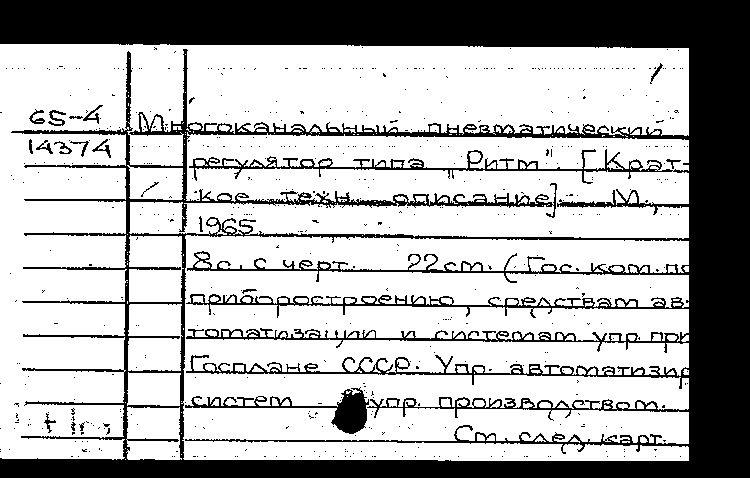 65-4
14374
Многоканальный пневматический
регулятор типа „Ритм". [Крат-
кое техн. описание]. М.,
1965.
8с. с черт. 22см. (Гос. ком. по
приборостроению, средствам ав-
томатизации и системам упр. при
Госплане СССР. Упр. автоматизир
систем упр. производством.
См. след. карт.